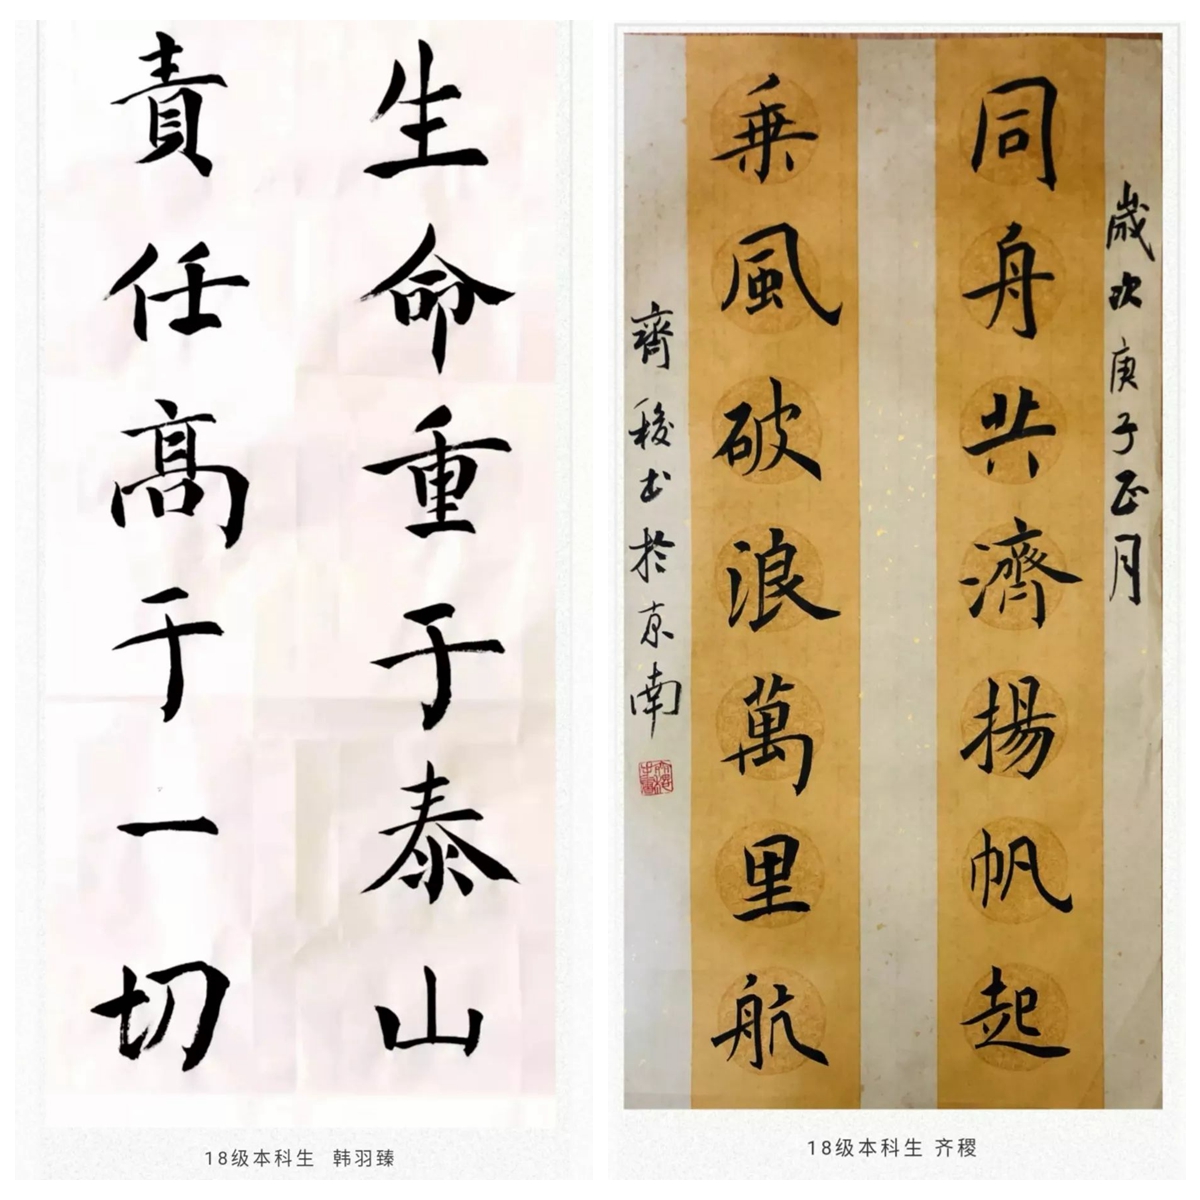 生命重于泰山
責任高于一切
18级本科生 韩羽臻
歲次庚子正月
同舟共濟揚帆起
乘風破浪萬里航
齊稷书於京南
18级本科生 齐稷